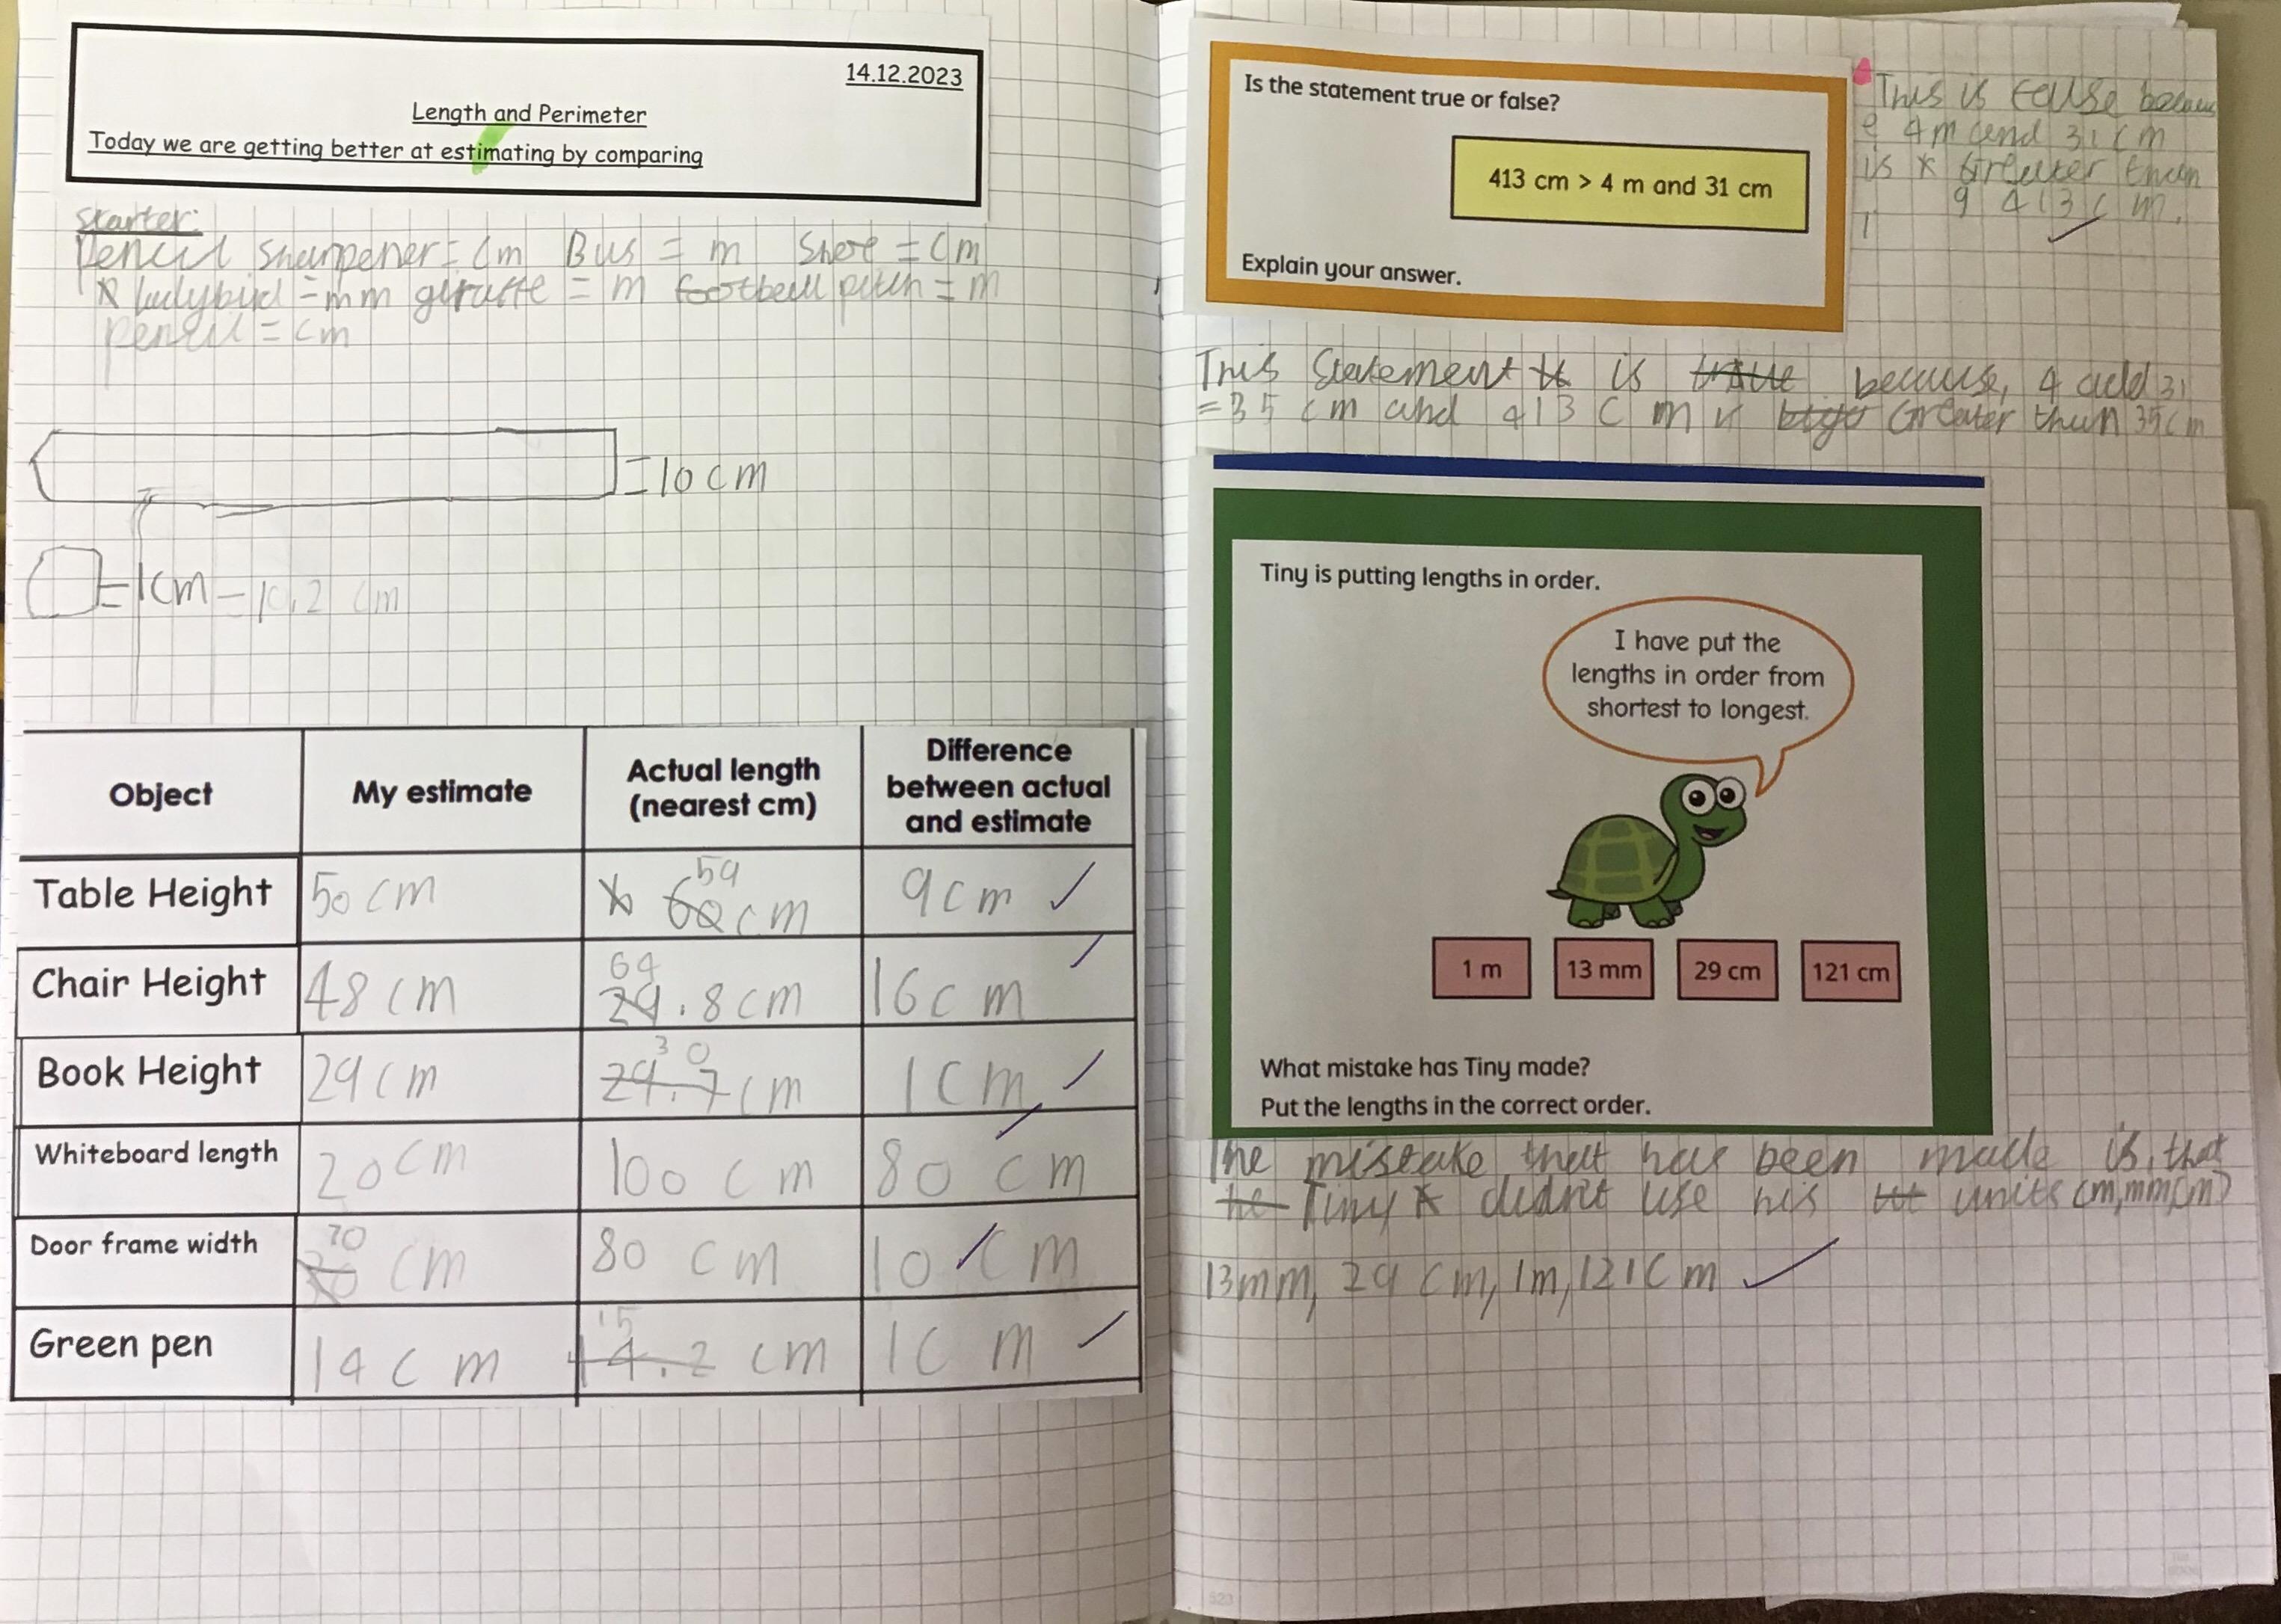 14.12.2023
Length and Perimeter
Today we are getting better at estimating by comparing
Starter:
Pencil sharpener = cm Bus = m Shoe = cm
ladybird = mm giraffe = m football pitch = m
pencil = cm
= 10 cm
= 1cm
Object My estimate Actual length (nearest cm) Difference between actual and estimate
Table Height 50 cm 59 cm 9cm ✓
Chair Height 48 cm 64 .8cm 16cm ✓
Book Height 29cm 30 cm 1cm ✓
Whiteboard length 20cm 100 cm 80 cm ✓
Door frame width 70 cm 80 cm 10 cm ✓
Green pen 14 cm 15 cm 1cm ✓
Is the statement true or false?
413 cm > 4 m and 31 cm
Explain your answer.
This is false becaus
e 4m and 31 cm
is Greater than
413 cm. ✓
This Statement is because, 4 add 31
= 35 cm and 413 cm is Greater than 35cm
Tiny is putting lengths in order.
I have put the
lengths in order from
shortest to longest.
1 m 13 mm 29 cm 121 cm
What mistake has Tiny made?
Put the lengths in the correct order.
The mistake that has been made is, that
Tiny didn't use his units (m,mm,cm)
13mm, 29 cm, 1m, 121cm ✓